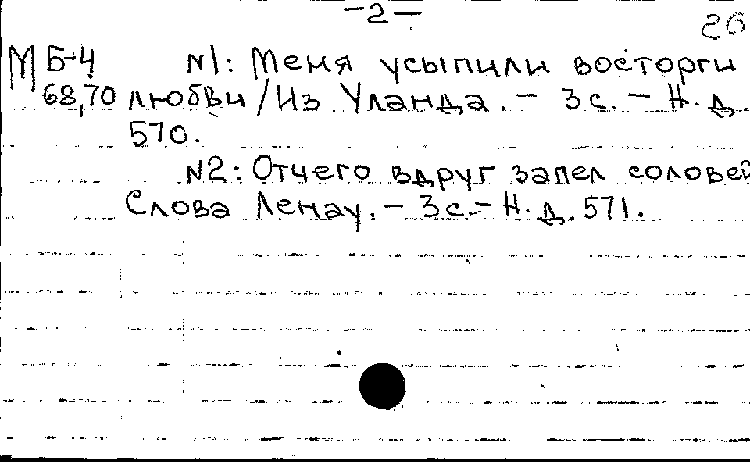 -2-
26
М Б-4 N1: Меня усыпили восторги
68,70 любви/Из Уланда. - 3с. - Н.д.
570.
N2: Отчего вдруг запел соловей
Слова Ленау. - 3с. - Н.д. 571.